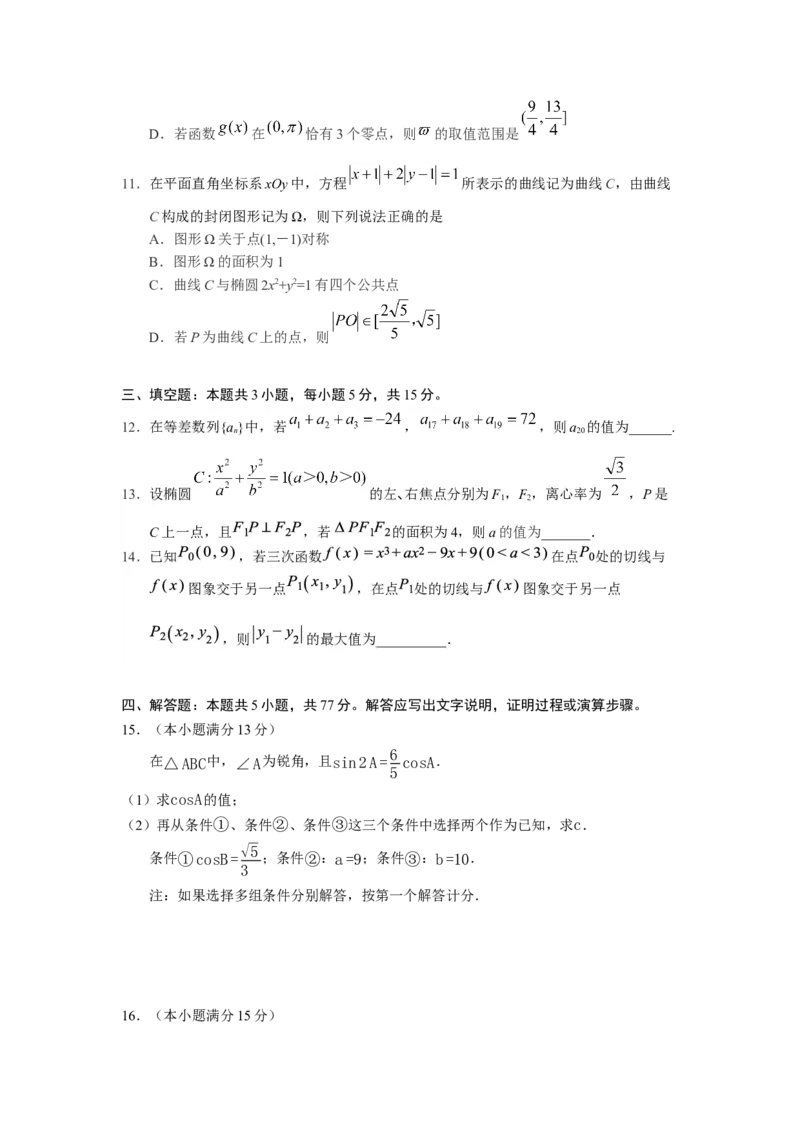 D．若函数 g(x) 在 (0,π) 恰有3个零点，则 ϖ 的取值范围是 (9/4, 13/4]
11．在平面直角坐标系xOy中，方程 |x+1|+2|y−1|=1 所表示的曲线记为曲线C，由曲线
C构成的封闭图形记为Ω，则下列说法正确的是
A．图形Ω关于点(1,－1)对称
B．图形Ω的面积为1
C．曲线C与椭圆2x²+y²=1有四个公共点
D．若P为曲线C上的点，则 |PO|∈[2√5/5, √5]
三、填空题：本题共3小题，每小题5分，共15分。
12．在等差数列{aₙ}中，若 a₁+a₂+a₃=−24，a₁₇+a₁₈+a₁₉=72，则a₂₀的值为______．
13．设椭圆 C: x²/a² + y²/b² =1(a>0,b>0) 的左、右焦点分别为F₁，F₂，离心率为 √3/2，P是
C上一点，且F₁P⊥F₂P，若 ΔPF₁F₂的面积为4，则a的值为_______．
14．已知P₀(0,9)，若三次函数 f(x)=x³+ax²−9x+9(0<a<3)在点P₀处的切线与
f(x)图象交于另一点P₁(x₁,y₁)，在点P₁处的切线与f(x)图象交于另一点
P₂(x₂,y₂)，则|y₁−y₂|的最大值为__________．
四、解答题：本题共5小题，共77分。解答应写出文字说明，证明过程或演算步骤。
15．（本小题满分13分）
在△ABC中，∠A为锐角，且sin2A=6/5 cosA．
（1）求cosA的值；
（2）再从条件①、条件②、条件③这三个条件中选择两个作为已知，求c．
条件①cosB=√5/3；条件②：a=9；条件③：b=10．
注：如果选择多组条件分别解答，按第一个解答计分．
16．（本小题满分15分）